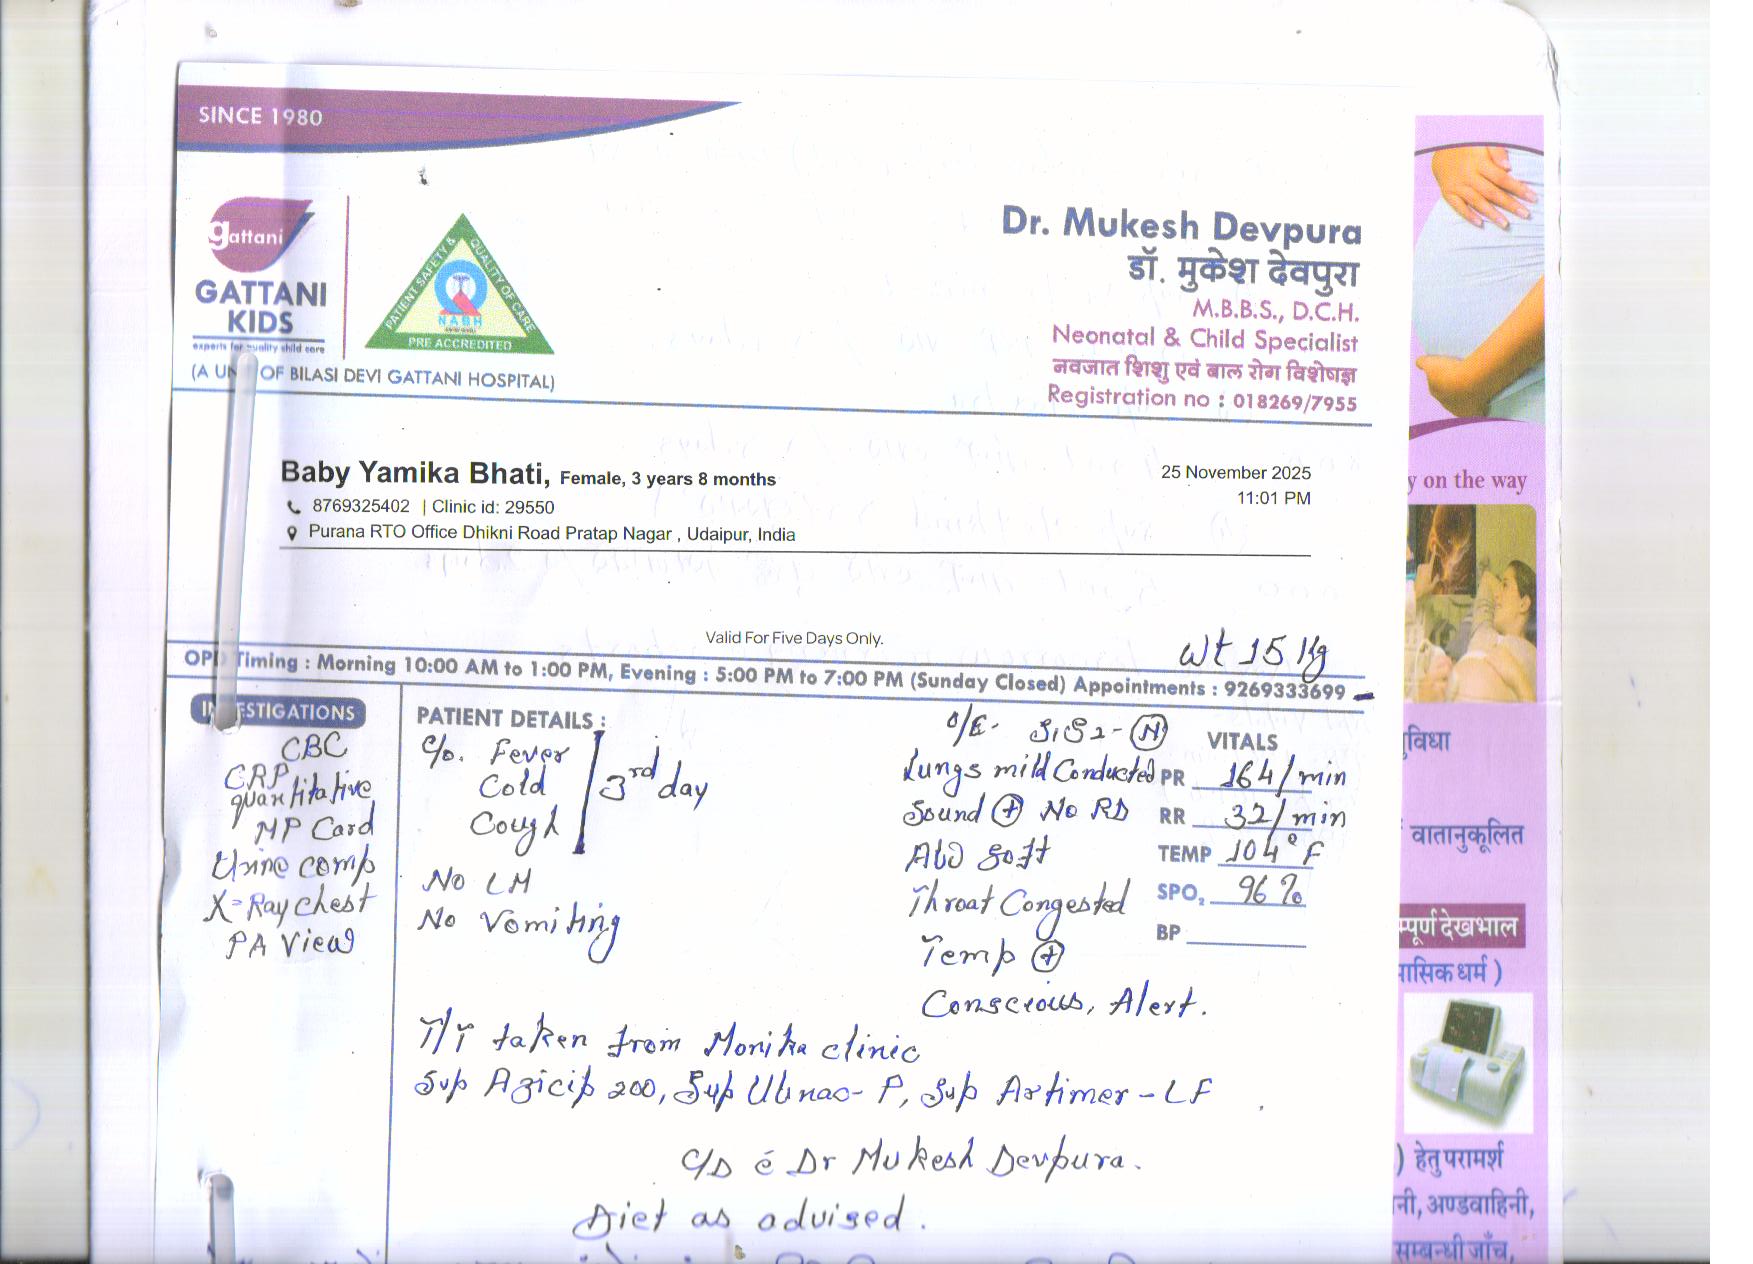 SINCE 1980
gattani
GATTANI
KIDS
experts for quality child care
(A UNIT OF BILASI DEVI GATTANI HOSPITAL)
PATIENT SAFETY & QUALITY OF CARE
NABH
PRE ACCREDITED
Dr. Mukesh Devpura
डॉ. मुकेश देवपुरा
M.B.B.S., D.C.H.
Neonatal & Child Specialist
नवजात शिशु एवं बाल रोग विशेषज्ञ
Registration no : 018269/7955
Baby Yamika Bhati, Female, 3 years 8 months
8769325402 | Clinic id: 29550
Purana RTO Office Dhikni Road Pratap Nagar , Udaipur, India
25 November 2025
11:01 PM
Valid For Five Days Only.
Wt 15 Kg
OPD Timing : Morning 10:00 AM to 1:00 PM, Evening : 5:00 PM to 7:00 PM (Sunday Closed) Appointments : 9269333699
INVESTIGATIONS
CBC
CRP
quantitative
MP Card
Urine comp
X-Ray chest
PA View
PATIENT DETAILS :
c/o. Fever
Cold
Cough
3rd day
No LM
No Vomiting
O/E- S1S2-(N)
Lungs mild Conducted
Sound (+) No RD
Abd Soft
Throat Congested
Temp (+)
Conscious, Alert.
VITALS
PR 164/min
RR 32/min
TEMP 104°F
SPO2 96%
BP
T/T taken from Monika clinic
Sup Azicip 200, Sup Ubnac-P, Sup Artimer-LF
C/D c̄ Dr Mukesh Devpura.
Diet as advised.
y on the way
सुविधा
वातानुकूलित
म्पूर्ण देखभाल
मासिक धर्म )
) हेतु परामर्श
नी, अण्डवाहिनी,
सम्बन्धी जाँच,